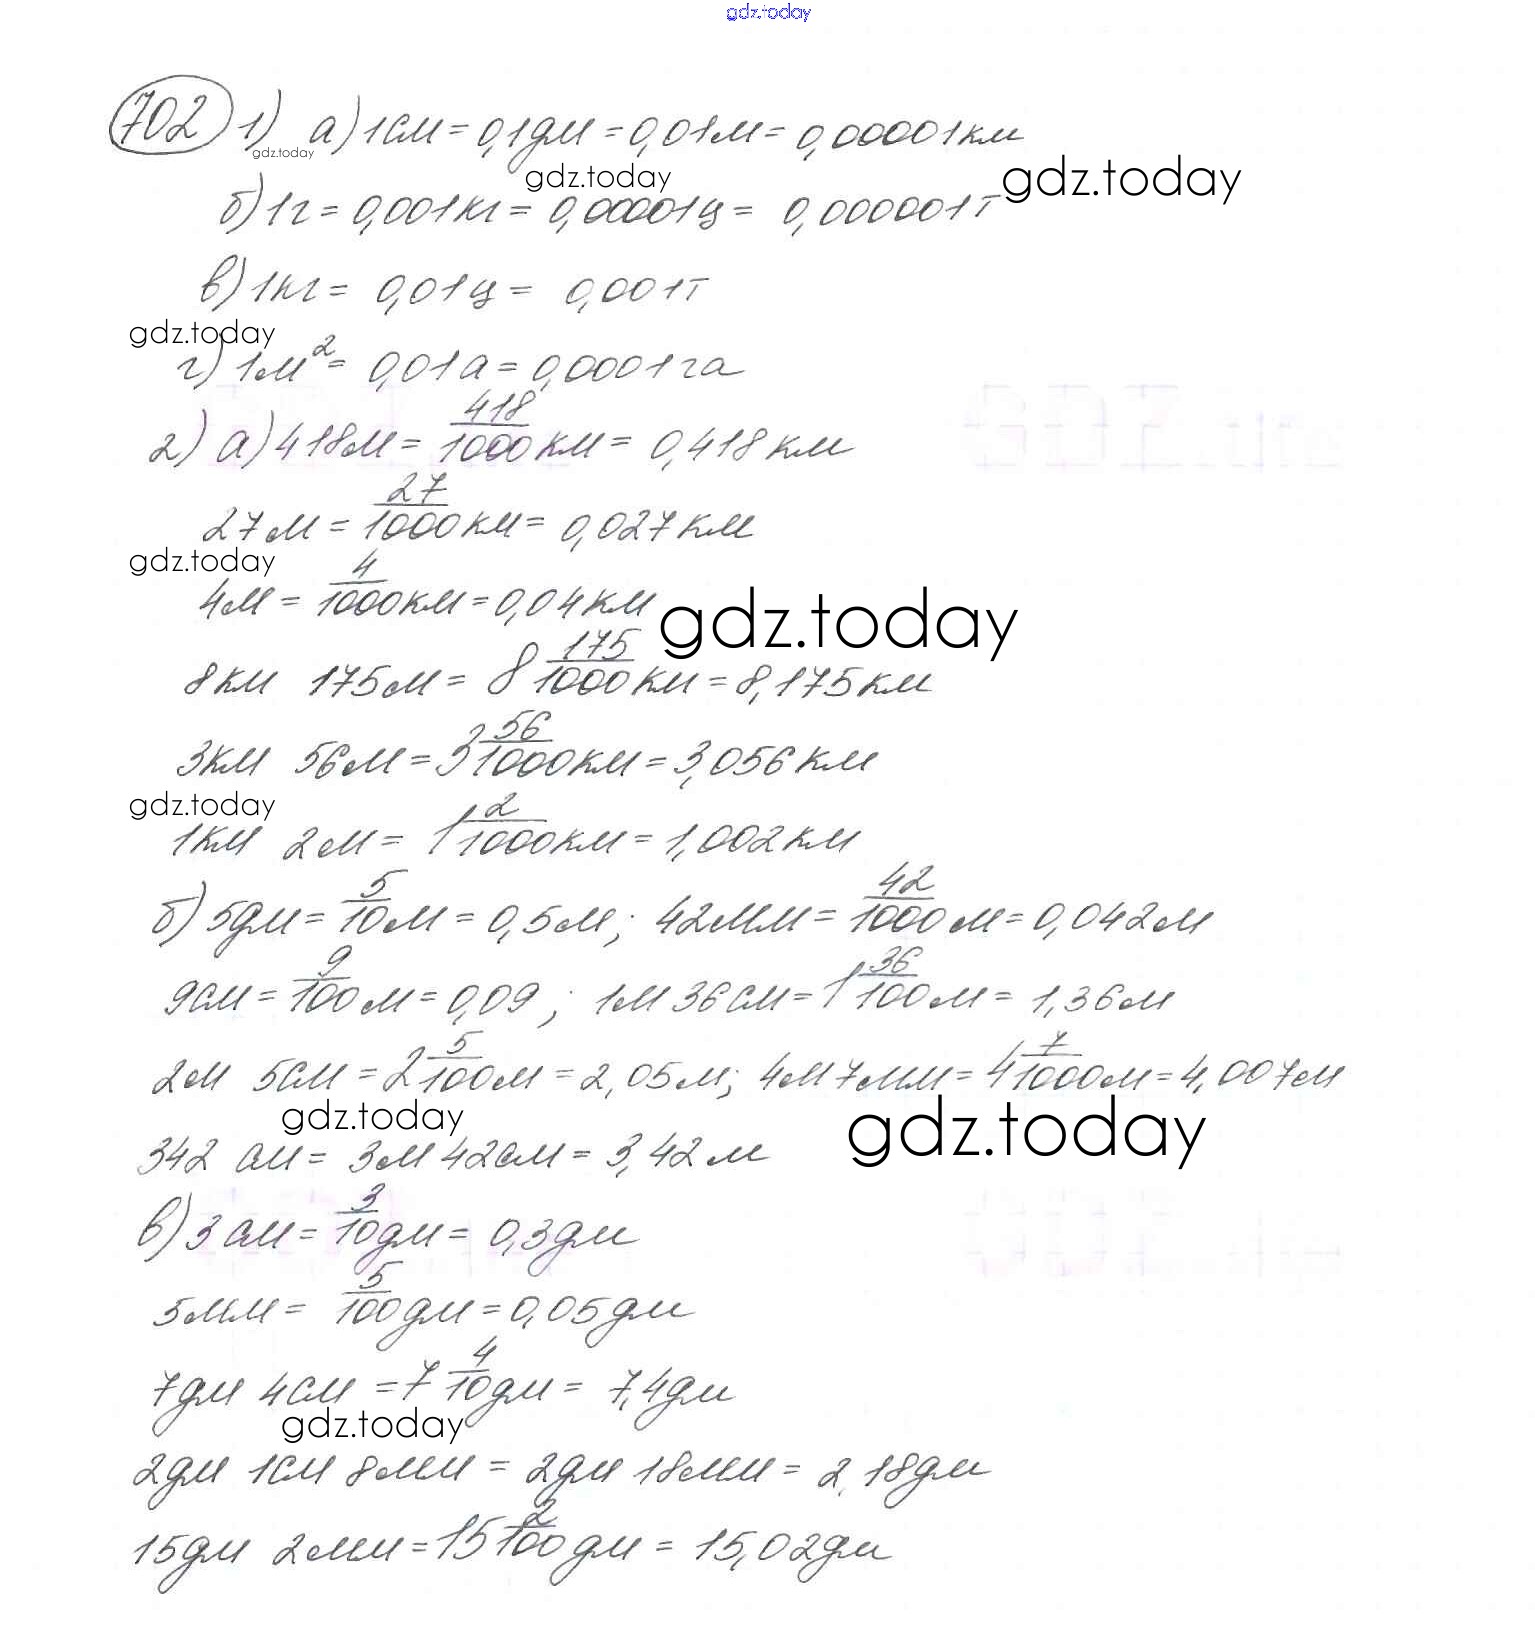 gdz.today
702 1) а) 1см = 0,1дм = 0,01м = 0,00001км
gdz.today
gdz.today
gdz.today
б) 1г = 0,001кг = 0,00001ц = 0,000001т
в) 1кг = 0,01ц = 0,001т
gdz.today
г) 1м² = 0,01а = 0,0001га
2) а) 418м = 418/1000 км = 0,418км
27м = 27/1000 км = 0,027км
gdz.today
4м = 4/1000 км = 0,04км
gdz.today
8км 175м = 8 175/1000 км = 8,175км
3км 56м = 3 56/1000 км = 3,056км
gdz.today
1км 2м = 1 2/1000 км = 1,002км
б) 5дм = 5/10 м = 0,5м; 42мм = 42/1000 м = 0,042м
9см = 9/100 м = 0,09; 1м 36см = 1 36/100 м = 1,36м
2м 5см = 2 5/100 м = 2,05м; 4м 7мм = 4 7/1000 м = 4,007м
gdz.today
gdz.today
342 см = 3м 42см = 3,42м
в) 3см = 3/10 дм = 0,3дм
5мм = 5/100 дм = 0,05дм
7дм 4см = 7 4/10 дм = 7,4дм
gdz.today
2дм 1см 8мм = 2дм 18мм = 2,18дм
15дм 2мм = 15 2/100 дм = 15,02дм